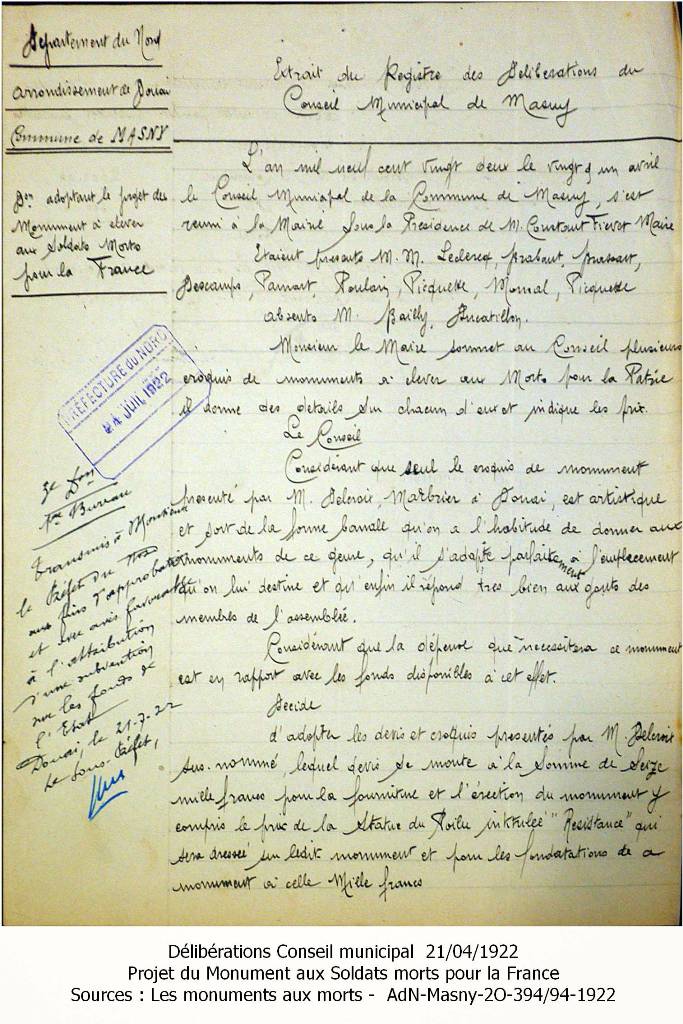 Département du Nord
Arrondissement de Douai
Commune de MASNY
Don adoptant le projet de
Monument à élever
aux Soldats Morts
pour la France
Extrait du Registre des Délibérations du
Conseil Municipal de Masny
L'an mil neuf cent vingt deux le vingt q un avril
le Conseil Municipal de la Commune de Masny, s'est
réuni à la Mairie sous la Présidence de M. Courtout Fievet Maire
Etaient présents M. M. Leclercq, Brabant, Brassart,
Descamps, Pamart, Poulain, Picquette, Monsal, Picquette
absents M. Bailly, Ducatillon.
Monsieur le Maire soumet au Conseil plusieurs
croquis de monuments à élever aux Morts pour la Patrie
il donne des détails sur chacun d'eux et indique les prix.
Le Conseil
Considérant que seul le croquis de monument
présenté par M. Delcroix, Marbrier à Douai, est artistique
et sort de la forme banale qu'on a l'habitude de donner aux
monuments de ce genre, qu'il s'adapte parfaitement à l'emplacement
qu'on lui destine et qu'enfin il répond très bien aux goûts des
membres de l'assemblée.
Considérant que la dépense que nécessitera ce monument
est en rapport avec les fonds disponibles à cet effet.
Décide
d'adopter les devis et croquis présentés par M. Delcroix
sus-nommé, lequel devis se monte à la Somme de Seize
mille francs pour la fourniture et l'érection du monument y
compris le prix de la Statue du Poilu intitulée "Résistance" qui
sera dressée sur ledit monument et pour les fondatations de ce
monument à celle Mille francs
PRÉFECTURE DU NORD
24 JUIL 1922
3e Don
1er Bureau
Transmis à Monsieur
le Préfet du Nord
aux fins d'approbation
et avec avis favorable
à l'attribution
d'une subvention
sur les fonds de
l'Etat
Douai, le 21-7-22
Le Sous-Préfet,
Délibérations Conseil municipal 21/04/1922
Projet du Monument aux Soldats morts pour la France
Sources : Les monuments aux morts - AdN-Masny-2O-394/94-1922